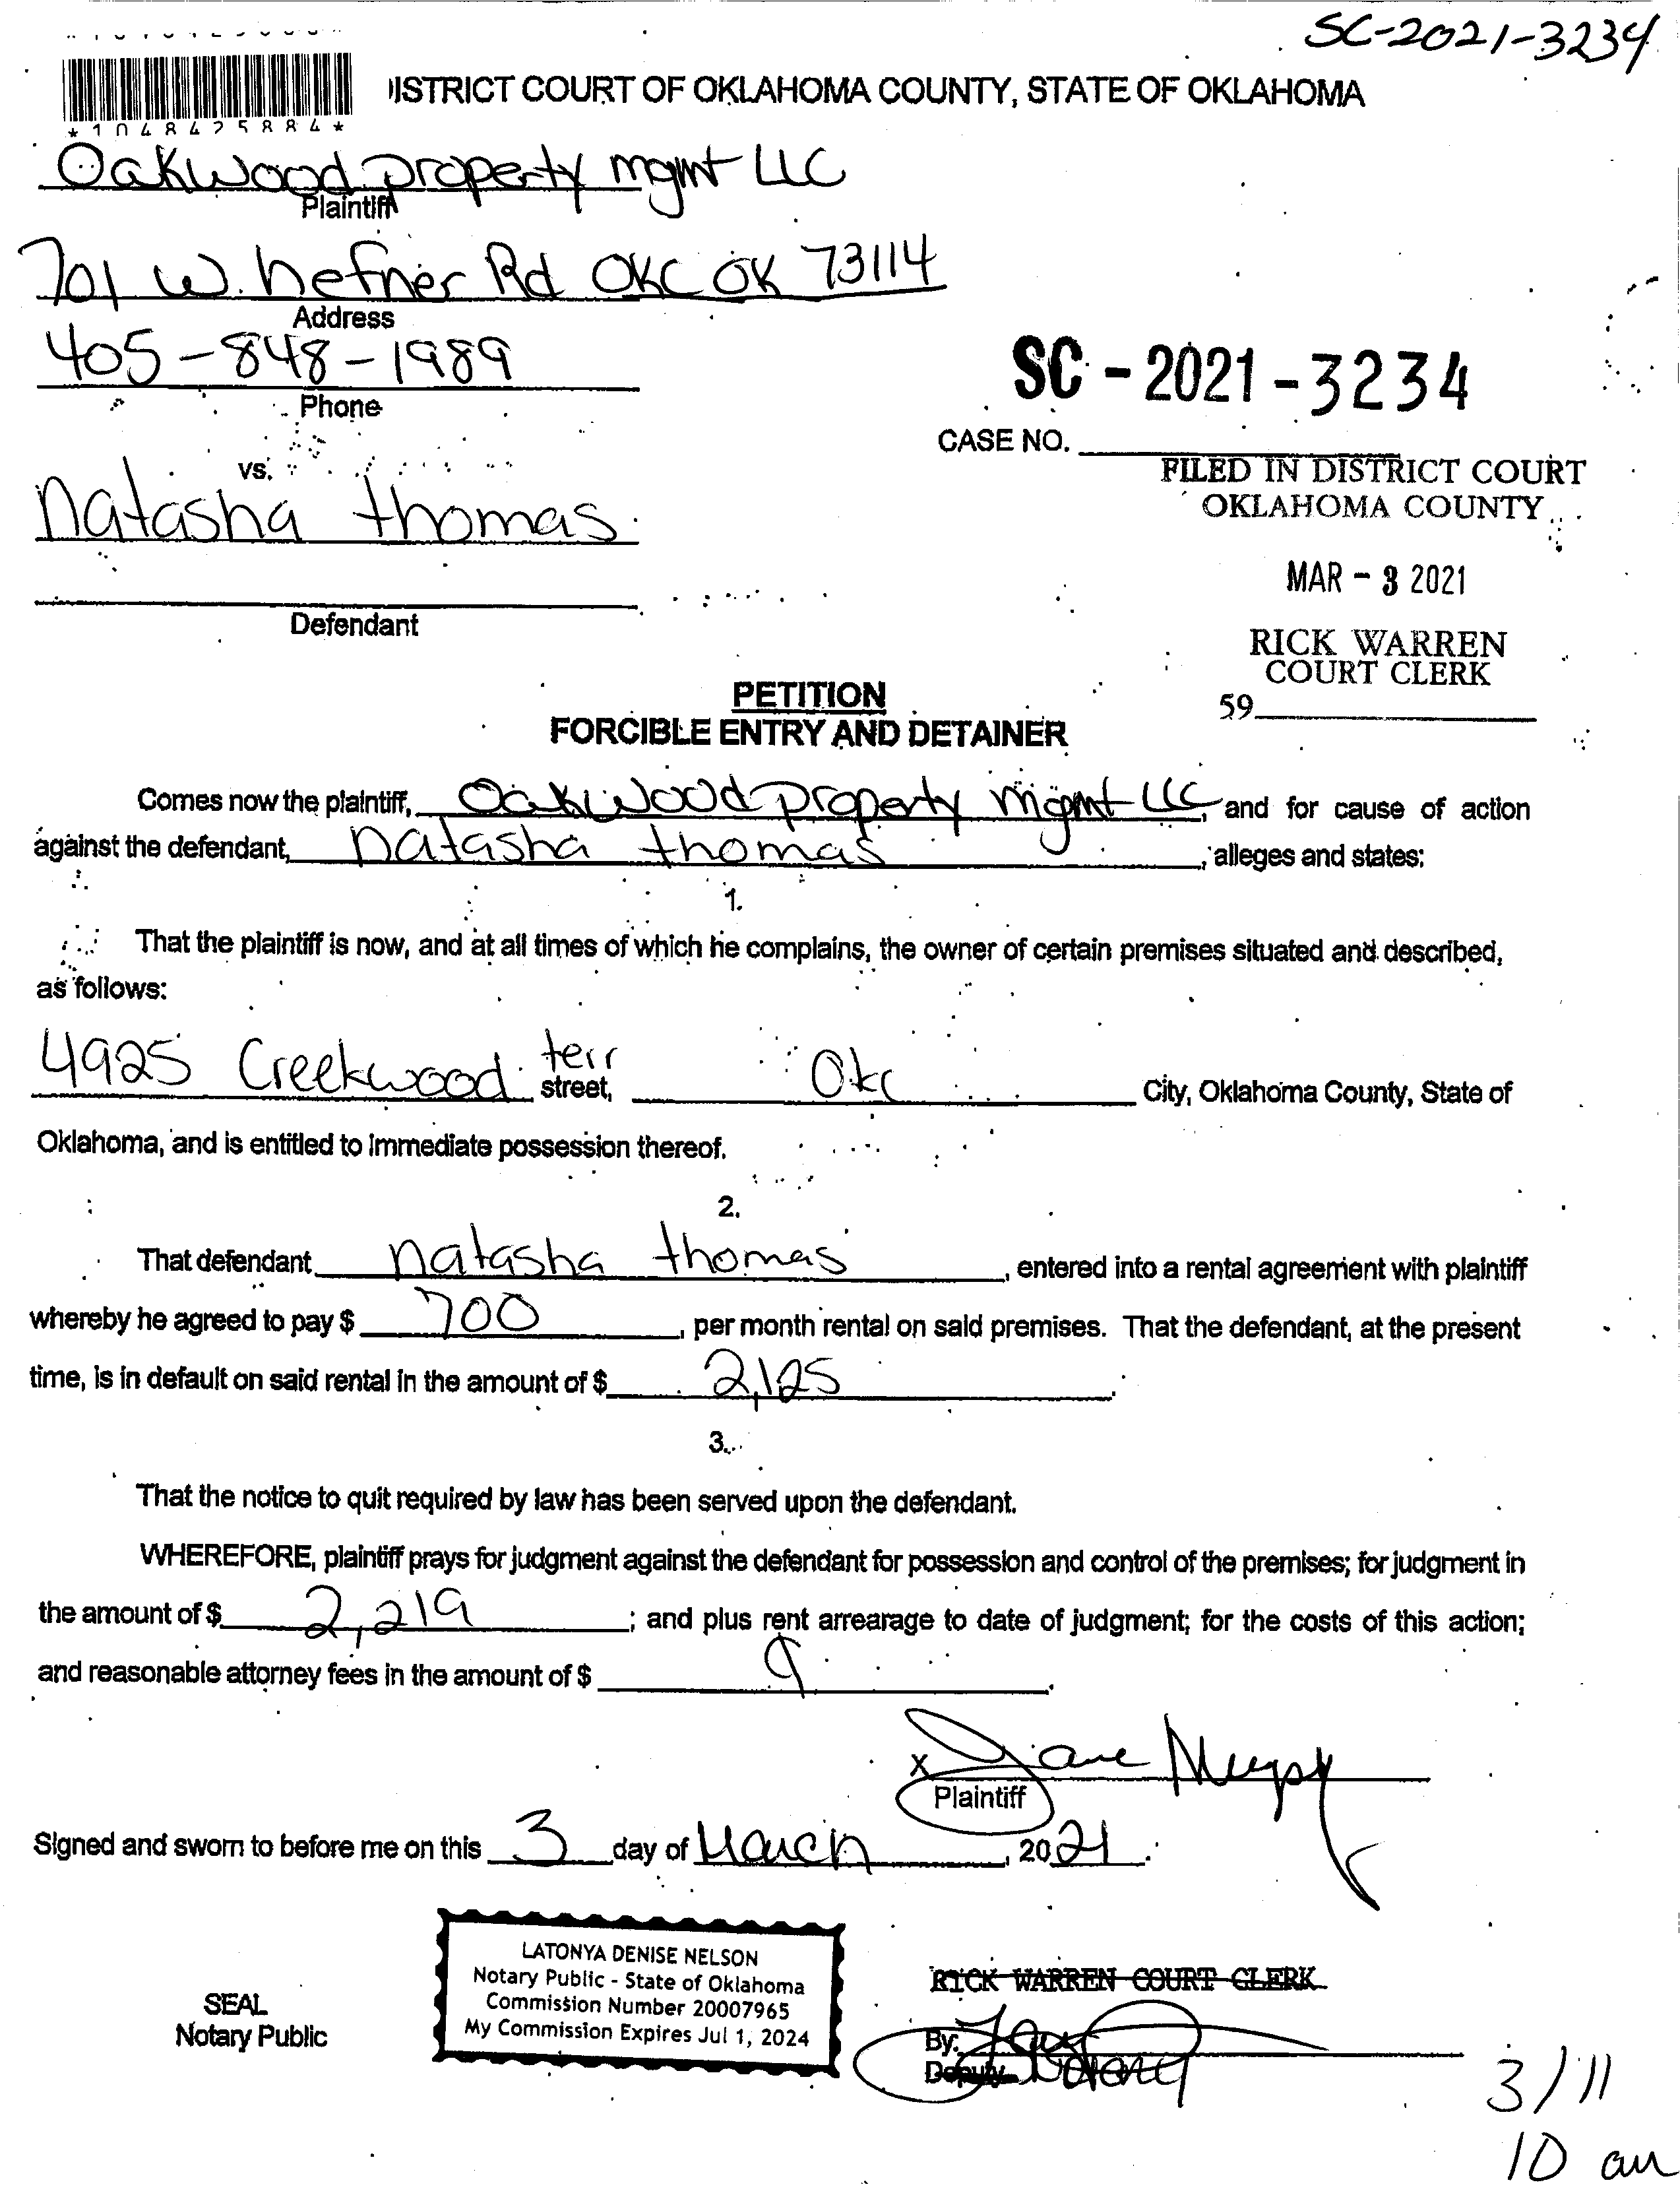 SC-2021-3234
ISTRICT COURT OF OKLAHOMA COUNTY, STATE OF OKLAHOMA
*1048425884*
Oakwood property mgmt LLC
Plaintiff
701 W. hefner Rd OKC OK 73114
Address
405-848-1989
Phone
SC - 2021 - 3234
CASE NO.
vs.
FILED IN DISTRICT COURT
OKLAHOMA COUNTY
natasha thomas
MAR - 3 2021
Defendant
RICK WARREN
COURT CLERK
59
PETITION
FORCIBLE ENTRY AND DETAINER
Comes now the plaintiff, Oakwood property mgmt LLC, and for cause of action
against the defendant, natasha thomas, alleges and states:
1.
That the plaintiff is now, and at all times of which he complains, the owner of certain premises situated and described,
as follows:
4925 Creekwood terr street, Okc City, Oklahoma County, State of
Oklahoma, and is entitled to immediate possession thereof.
2.
That defendant natasha thomas, entered into a rental agreement with plaintiff
whereby he agreed to pay $ 700, per month rental on said premises. That the defendant, at the present
time, is in default on said rental in the amount of $ 2,125.
3.
That the notice to quit required by law has been served upon the defendant.
WHEREFORE, plaintiff prays for judgment against the defendant for possession and control of the premises; for judgment in
the amount of $ 2,219; and plus rent arrearage to date of judgment; for the costs of this action;
and reasonable attorney fees in the amount of $
X
Plaintiff
Signed and sworn to before me on this 3 day of March, 2021.
LATONYA DENISE NELSON
Notary Public - State of Oklahoma
Commission Number 20007965
My Commission Expires Jul 1, 2024
SEAL
Notary Public
RICK WARREN COURT CLERK
By:
Deputy
Notary
3/11
10 am